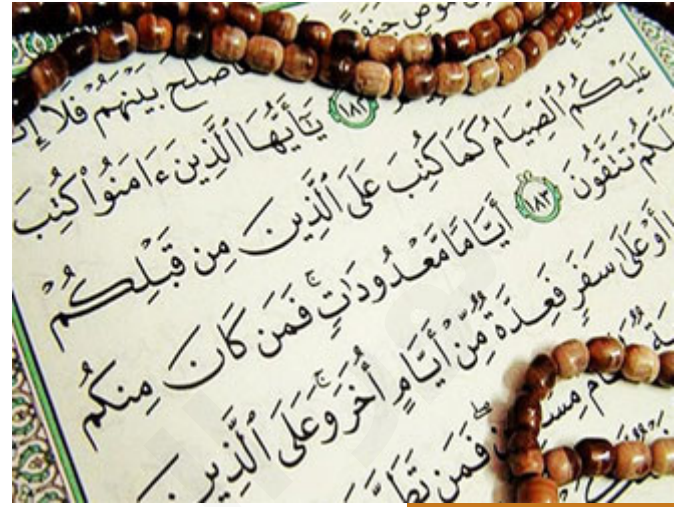 مُّوصٍ جَنَفًا
فَأَصْلَحَ بَيْنَهُمْ فَلَآ إِ
١٨٢ يَٰٓأَيُّهَا ٱلَّذِينَ ءَامَنُوا۟ كُتِبَ
عَلَيْكُمُ ٱلصِّيَامُ كَمَا كُتِبَ عَلَى ٱلَّذِينَ مِن قَبْلِكُمْ
لَعَلَّكُمْ تَتَّقُونَ ١٨٣ أَيَّامًا مَّعْدُودَٰتٍ ۚ فَمَن كَانَ مِنكُم
أَوْ عَلَىٰ سَفَرٍ فَعِدَّةٌ مِّنْ أَيَّامٍ أُخَرَ ۚ وَعَلَى ٱلَّذِينَ
طَعَامُ فَمَن